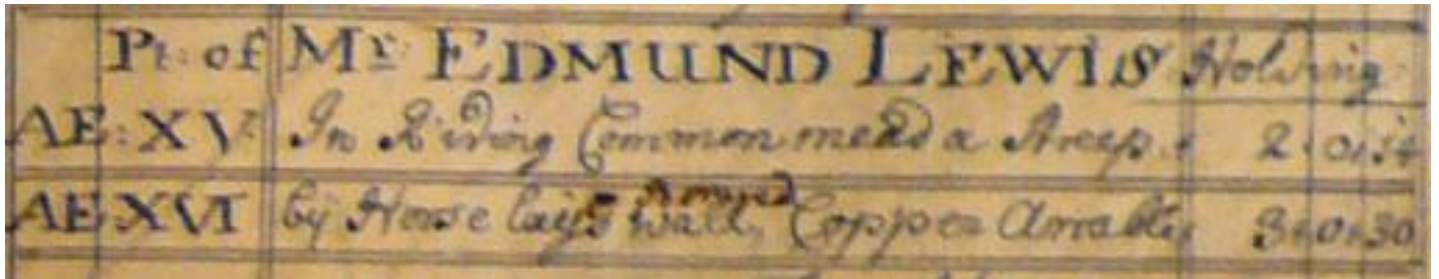 Pt: of Mr: EDMUND LEWIS Holding
AE: XV In Riding Common mead a Streep 2:0:14
AE XVI by Horse lays Wall, Copper Arrable 3:0:30